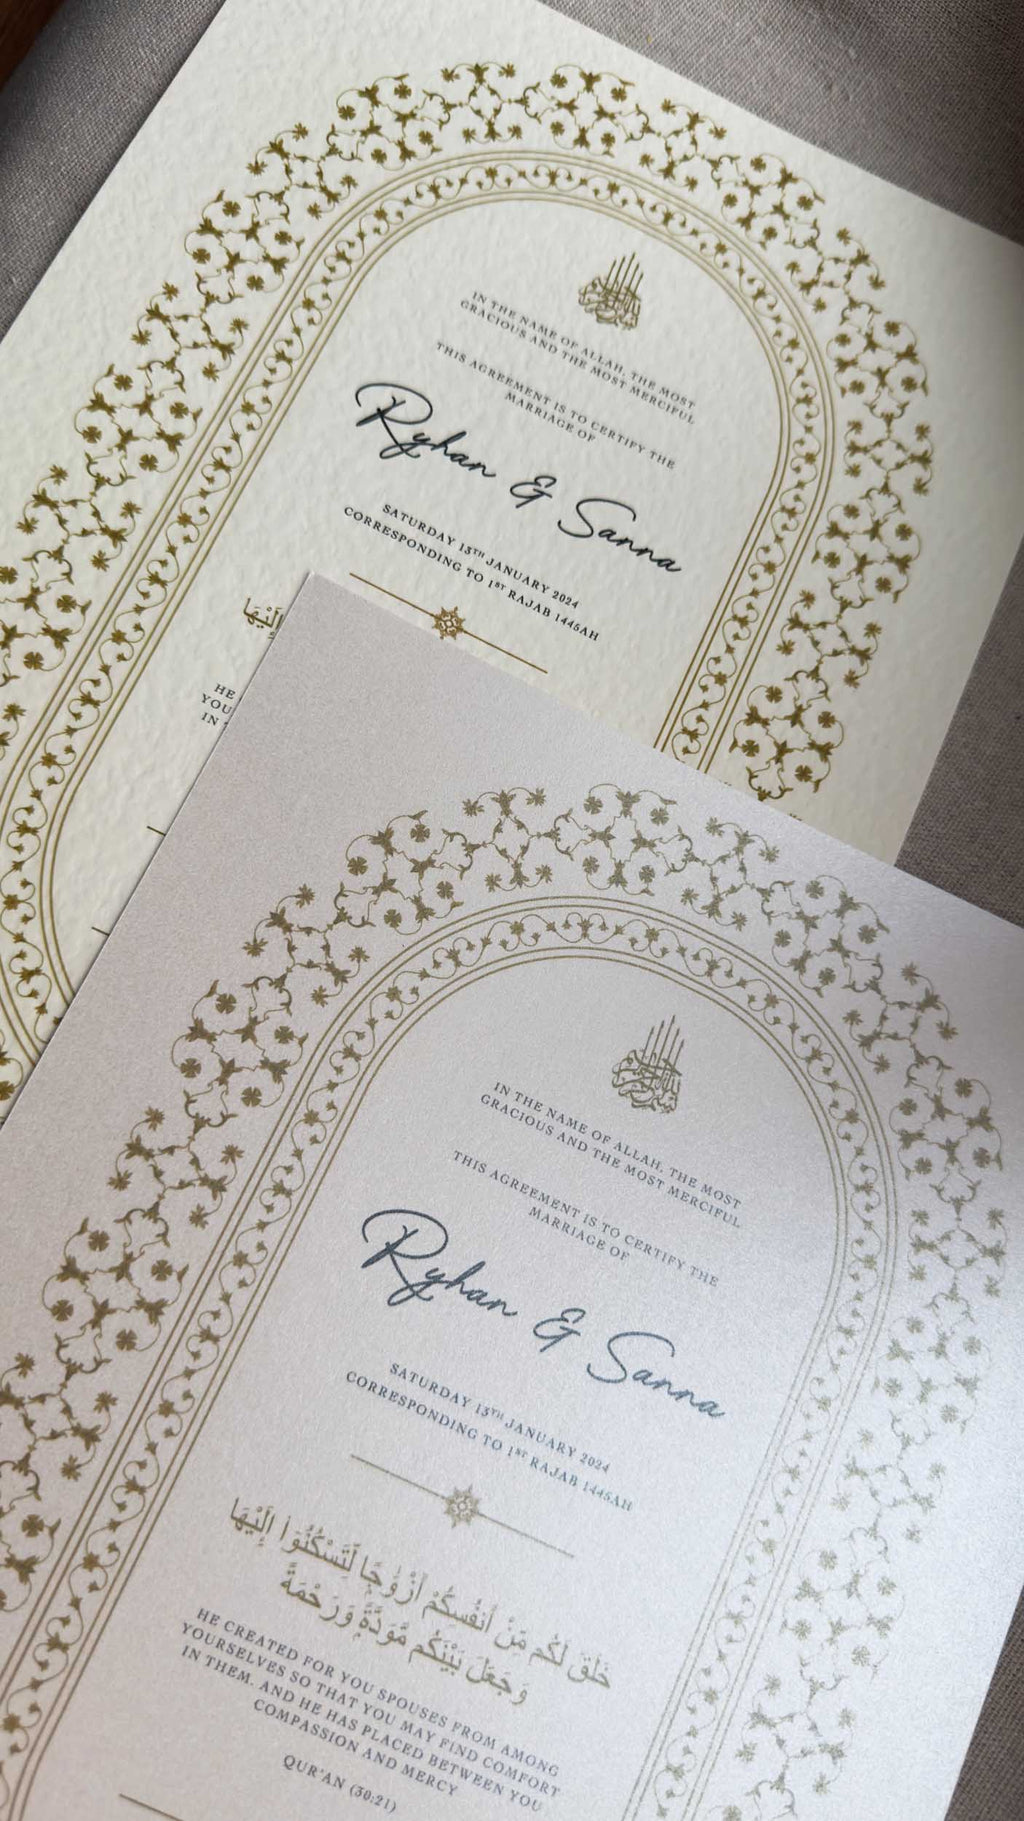 IN THE NAME OF ALLAH, THE MOST
GRACIOUS AND THE MOST MERCIFUL
THIS AGREEMENT IS TO CERTIFY THE
MARRIAGE OF
Ryhan & Sanna
SATURDAY 13TH JANUARY 2024
CORRESPONDING TO 1ST RAJAB 1445AH
إِلَيْهَا
HE
YOU
IN
IN THE NAME OF ALLAH, THE MOST
GRACIOUS AND THE MOST MERCIFUL
THIS AGREEMENT IS TO CERTIFY THE
MARRIAGE OF
Ryhan & Sanna
SATURDAY 13TH JANUARY 2024
CORRESPONDING TO 1ST RAJAB 1445AH
خَلَقَ لَكُم مِّنْ أَنفُسِكُمْ أَزْوَٰجًا لِّتَسْكُنُوٓا۟ إِلَيْهَا
وَجَعَلَ بَيْنَكُم مَّوَدَّةً وَرَحْمَةً
HE CREATED FOR YOU SPOUSES FROM AMONG
YOURSELVES SO THAT YOU MAY FIND COMFORT
IN THEM. AND HE HAS PLACED BETWEEN YOU
COMPASSION AND MERCY
QUR'AN (30:21)